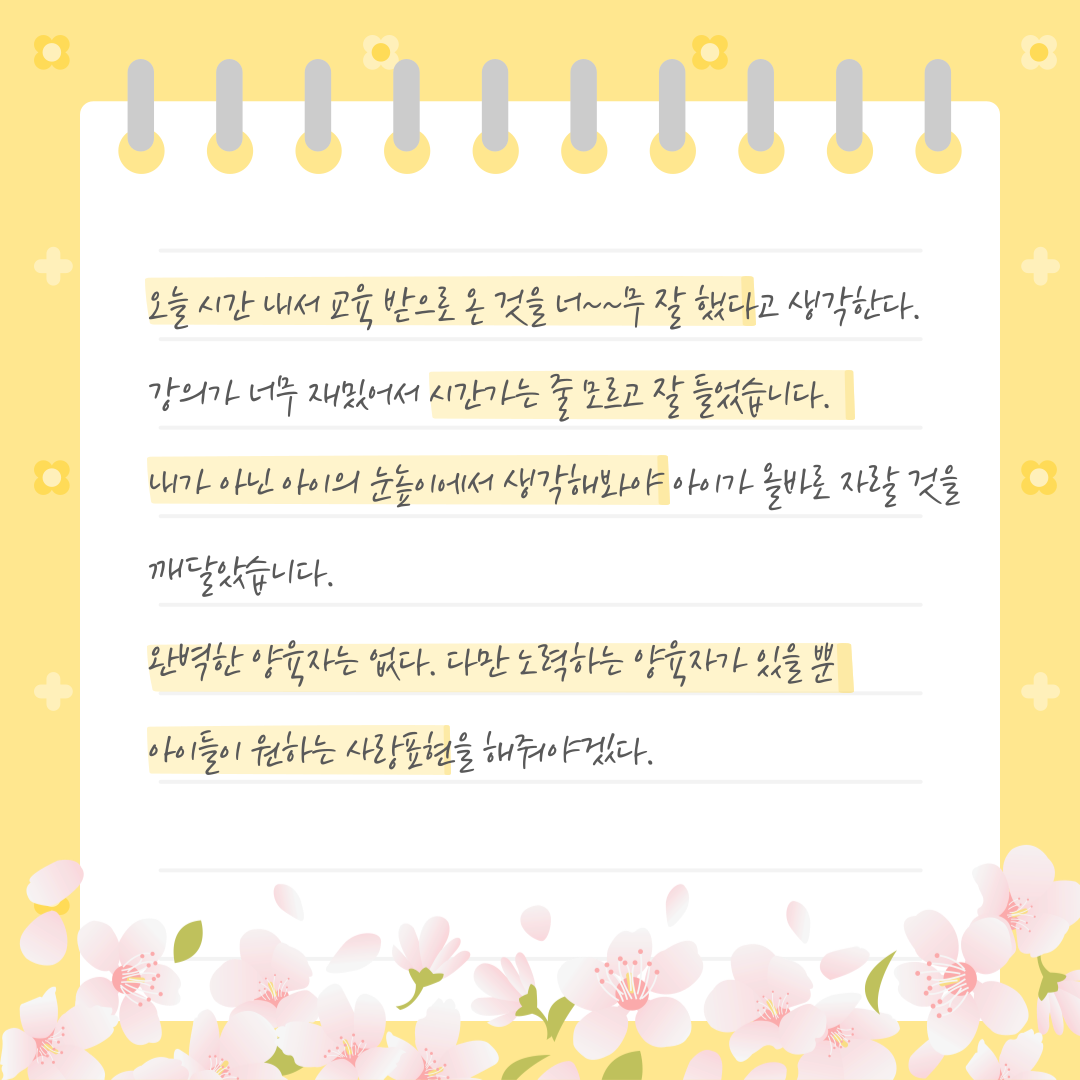 오늘 시간 내서 교육 받으로 온 것을 너~~무 잘 했다고 생각한다.
강의가 너무 재밌어서 시간가는 줄 모르고 잘 들었습니다.
내가 아닌 아이의 눈높이에서 생각해봐야 아이가 올바로 자랄 것을
깨달았습니다.
완벽한 양육자는 없다. 다만 노력하는 양육자가 있을 뿐
아이들이 원하는 사랑표현을 해줘야겠다.